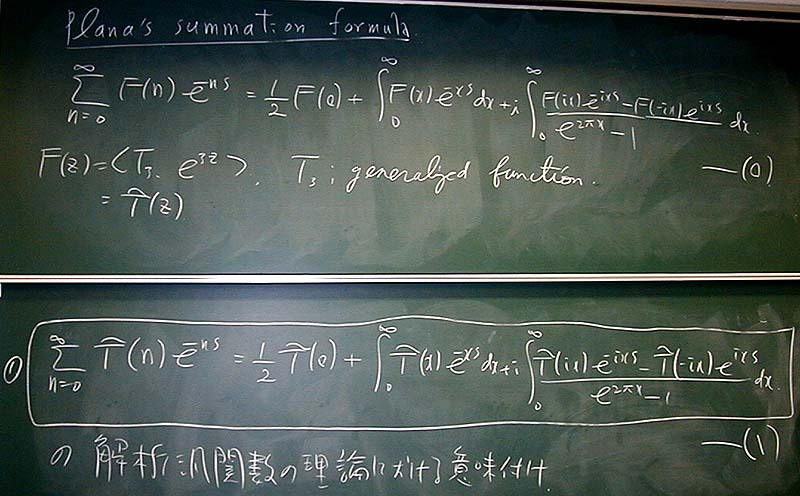 Plana's summation formula
∑_{n=0}^{∞} F(n) e^{-ns} = 1/2 F(0) + ∫_0^∞ F(x) e^{-xs} dx + i ∫_0^∞ (F(ix) e^{-ixs} - F(-ix) e^{ixs}) / (e^{2πx} - 1) dx. —(0)
F(z) = <T_ζ, e^{ζz}>. T_ζ ; generalized function.
= T̂(z)
① ∑_{n=0}^{∞} T̂(n) e^{-ns} = 1/2 T̂(0) + ∫_0^∞ T̂(x) e^{-xs} dx + i ∫_0^∞ (T̂(ix) e^{-ixs} - T̂(-ix) e^{ixs}) / (e^{2πx} - 1) dx. —(1)
の解析汎関数の理論における意味付け